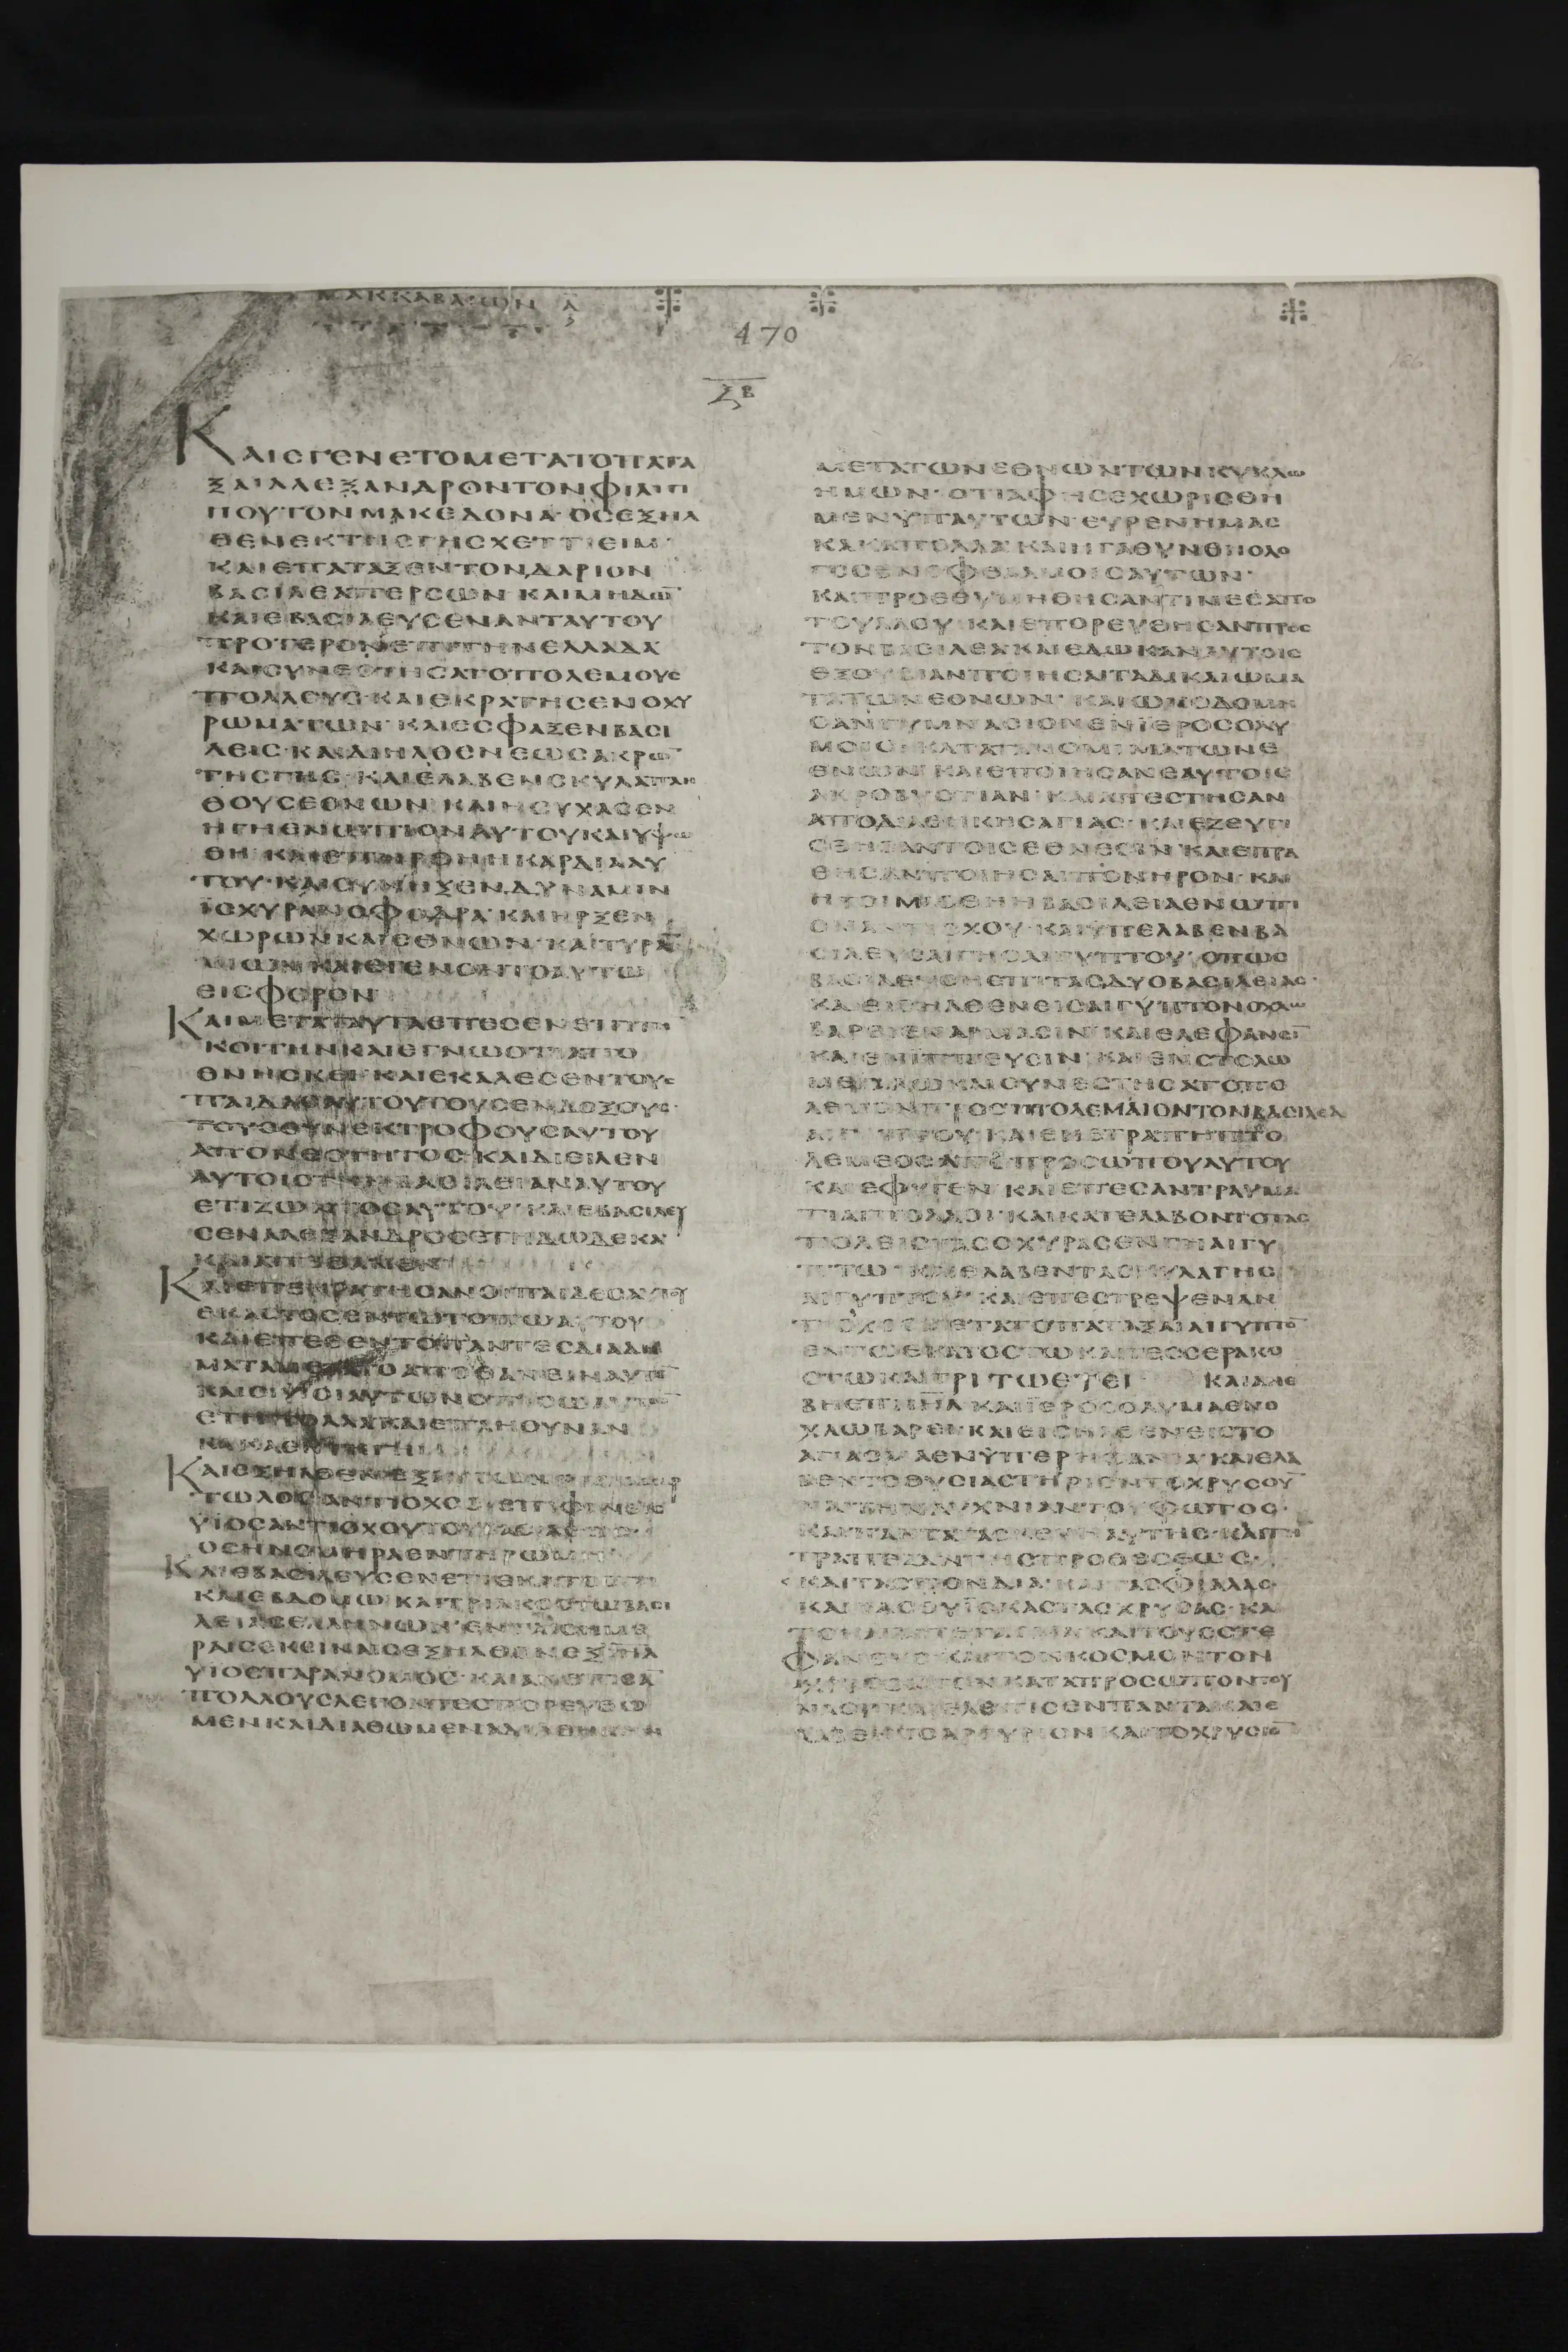 ΜΑΚΚΑΒΑΙΩΝ Α
470
ΚΑΙΕΓΕΝΕΤΟΜΕΤΑΤΟΠΑΤΑ
ΞΑΙΑΛΕΞΑΝΔΡΟΝΤΟΝΦΙΛΙΠ
ΠΟΥΤΟΝΜΑΚΕΔΟΝΑ·ΟΣΕΞΗΛ
ΘΕΝΕΚΤΗΣΓΗΣΧΕΤΤΙΕΙΜ·
ΚΑΙΕΠΑΤΑΞΕΝΤΟΝΔΑΡΙΟΝ
ΒΑΣΙΛΕΑΠΕΡΣΩΝ·ΚΑΙΜΗΔΩ̅
ΚΑΙΕΒΑΣΙΛΕΥΣΕΝΑΝΤΑΥΤΟΥ
ΠΡΟΤΕΡΟΝΕΠΙΤΗΝΕΛΛΑΔΑ
ΚΑΙΣΥΝΕΣΤΗΣΑΤΟΠΟΛΕΜΟΥΣ
ΠΟΛΛΟΥΣ·ΚΑΙΕΚΡΑΤΗΣΕΝΟΧΥ
ΡΩΜΑΤΩΝ·ΚΑΙΕΣΦΑΞΕΝΒΑΣΙ
ΛΕΙΣ·ΚΑΙΔΙΗΛΘΕΝΕΩΣΑΚΡΩ̅
ΤΗΣΓΗΣ·ΚΑΙΕΛΑΒΕΝΣΚΥΛΑΠΛΗ
ΘΟΥΣΕΘΝΩΝ·ΚΑΙΗΣΥΧΑΣΕΝ
ΗΓΗΕΝΩΠΙΟΝΑΥΤΟΥΚΑΙΥΨΩ
ΘΗ·ΚΑΙΕΠΗΡΘΗΗΚΑΡΔΙΑΑΥ
ΤΟΥ·ΚΑΙΣΥΝΗΞΕΝΔΥΝΑΜΙΝ
ΙΣΧΥΡΑΝΣΦΟΔΡΑ·ΚΑΙΗΡΞΕΝ
ΧΩΡΩΝΚΑΙΕΘΝΩΝ·ΚΑΙΤΥΡΑ̅
ΝΙΩΝΚΑΙΕΓΕΝΟΝΤΟΑΥΤΩ
ΕΙΣΦΟΡΟΝ
ΚΑΙΜΕΤΑΤΑΥΤΑΕΠΕΣΕΝΕΠΙΤΗ̅
ΚΟΙΤΗΝΚΑΙΕΓΝΩΟΤΙΑΠΟ
ΘΝΗΣΚΕΙ·ΚΑΙΕΚΑΛΕΣΕΝΤΟΥΣ
ΠΑΙΔΑΣΑΥΤΟΥΤΟΥΣΕΝΔΟΞΟΥΣ·
ΤΟΥΣΣΥΝΕΚΤΡΟΦΟΥΣΑΥΤΟΥ
ΑΠΟΝΕΟΤΗΤΟΣ·ΚΑΙΔΙΕΙΛΕΝ
ΑΥΤΟΙΣΤΗΝΒΑΣΙΛΕΙΑΝΑΥΤΟΥ
ΕΤΙΖΩΝΤΟΣΑΥΤΟΥ·ΚΑΙΕΒΑΣΙΛΕΥ
ΣΕΝΑΛΕΞΑΝΔΡΟΣΕΤΗΔΩΔΕΚΑ
ΚΑΙΑΠΕΘΑΝΕΝ
ΚΑΙΕΠΕΚΡΑΤΗΣΑΝΟΙΠΑΙΔΕΣΑΥΤΟΥ
ΕΚΑΣΤΟΣΕΝΤΩΤΟΠΩΑΥΤΟΥ
ΚΑΙΕΠΕΘΕΝΤΟΠΑΝΤΕΣΔΙΑΔΗ
ΜΑΤΑΜΕΤΑΤΟΑΠΟΘΑΝΕΙΝΑΥΤΟ̅
ΚΑΙΟΙΥΙΟΙΑΥΤΩΝΟΠΙΣΩΑΥΤΩ̅
ΕΤΗΠΟΛΛΑΚΑΙΕΠΛΗΘΥΝΑΝ
ΚΑΚΑΕΝΤΗΓΗ
ΤΩΛΟΣΑΝΤΙΟΧΟΣΕΠΙΦΑΝΗΣ
ΥΙΟΣΑΝΤΙΟΧΟΥΤΟΥΒΑΣΙΛΕΩΣ·
ΟΣΗΝΟΜΗΡΑΕΝΤΗΡΩΜΗ
ΚΑΙΕΒΑΣΙΛΕΥΣΕΝΕΤΙΕΚΑΤΟΣΤΩ
ΚΑΙΕΒΔΟΜΩΚΑΙΤΡΙΑΚΟΣΤΩΒΑΣΙ
ΛΕΙΑΣΕΛΛΗΝΩΝ·ΕΝΤΑΙΣΗΜΕ
ΡΑΙΣΕΚΕΙΝΑΙΣΕΞΗΛΘΟΝΕΞΙΗΛ
ΥΙΟΙΠΑΡΑΝΟΜΟΙ·ΚΑΙΑΝΕΠΕΙΣΑ̅
ΠΟΛΛΟΥΣΛΕΓΟΝΤΕΣΠΟΡΕΥΘΩ
ΜΕΝΚΑΙΔΙΑΘΩΜΕΝΔΙΑΘΗΚΗΝ
ΜΕΤΑΤΩΝΕΘΝΩΝΤΩΝΚΥΚΛΩ
ΗΜΩΝ·ΟΤΙΑΦΗΣΕΧΩΡΙΣΘΗ
ΜΕΝΥΠΑΥΤΩΝ·ΕΥΡΕΝΗΜΑΣ
ΚΑΚΑΠΟΛΛΑ·ΚΑΙΗΓΑΘΥΝΘΗΟΛΟ
ΓΟΣΕΝΟΦΘΑΛΜΟΙΣΑΥΤΩΝ·
ΚΑΙΠΡΟΕΘΥΜΗΘΗΣΑΝΤΙΝΕΣΑΠΟ
ΤΟΥΛΑΟΥ·ΚΑΙΕΠΟΡΕΥΘΗΣΑΝΠΡΟΣ
ΤΟΝΒΑΣΙΛΕΑΚΑΙΕΔΩΚΑΝΑΥΤΟΙΣ
ΕΞΟΥΣΙΑΝΠΟΙΗΣΑΙΤΑΔΙΚΑΙΩΜΑ
ΤΑΤΩΝΕΘΝΩΝ·ΚΑΙΩΚΟΔΟΜΗ
ΣΑΝΓΥΜΝΑΣΙΟΝΕΝΙΕΡΟΣΟΛΥ
ΜΟΙΣ·ΚΑΤΑΤΑΝΟΜΙΜΑΤΩΝΕ
ΘΝΩΝ·ΚΑΙΕΠΟΙΗΣΑΝΕΑΥΤΟΙΣ
ΑΚΡΟΒΥΣΤΙΑΝ·ΚΑΙΑΠΕΣΤΗΣΑΝ
ΑΠΟΔΙΑΘΗΚΗΣΑΓΙΑΣ·ΚΑΙΕΖΕΥΓΙ
ΣΘΗΣΑΝΤΟΙΣΕΘΝΕΣΙΝ·ΚΑΙΕΠΡΑ
ΘΗΣΑΝΠΟΙΗΣΑΙΠΟΝΗΡΟΝ·ΚΑΙ
ΗΤΟΙΜΑΣΘΗΗΒΑΣΙΛΕΙΑΕΝΩΠΙ
ΟΝΑΝΤΙΟΧΟΥ·ΚΑΙΥΠΕΛΑΒΕΝΒΑ
ΣΙΛΕΥΣΑΙΓΗΣΑΙΓΥΠΤΟΥ·ΟΠΩΣ
ΒΑΣΙΛΕΥΣΗΕΠΙΤΑΣΔΥΟΒΑΣΙΛΕΙΑΣ·
ΚΑΙΕΙΣΗΛΘΕΝΕΙΣΑΙΓΥΠΤΟΝΟΧΛΩ
ΒΑΡΕΙΕΝΑΡΜΑΣΙΝ·ΚΑΙΕΛΕΦΑΝΣΙ̅
ΚΑΙΕΝΙΠΠΕΥΣΙΝ·ΚΑΙΕΝΣΤΟΛΩ
ΜΕΓΑΛΩΚΑΙΣΥΝΕΣΤΗΣΑΤΟΠΟ
ΛΕΜΟΝΠΡΟΣΠΤΟΛΕΜΑΙΟΝΤΟΝΒΑΣΙΛΕΑ
ΑΙΓΥΠΤΟΥ·ΚΑΙΕΝΕΤΡΑΠΗΠΤΟ
ΛΕΜΕΟΣΑΠΟΠΡΟΣΩΠΟΥΑΥΤΟΥ
ΚΑΙΕΦΥΓΕΝ·ΚΑΙΕΠΕΣΑΝΤΡΑΥΜΑ
ΤΙΑΙΠΟΛΛΟΙ·ΚΑΙΚΑΤΕΛΑΒΟΝΤΟΤΑΣ
ΠΟΛΕΙΣΤΑΣΟΧΥΡΑΣΕΝΓΗΑΙΓΥ
ΠΤΩ·ΚΑΙΕΛΑΒΕΝΤΑΣΚΥΛΑΓΗΣ
ΑΙΓΥΠΤΟΥ·ΚΑΙΕΠΕΣΤΡΕΨΕΝΑΝ
ΤΙΟΧΟΣΜΕΤΑΤΟΠΑΤΑΞΑΙΑΙΓΥΠΤΟ̅
ΕΝΤΩΕΚΑΤΟΣΤΩΚΑΙΤΕΣΣΕΡΑΚΟ
ΣΤΩΚΑΙΤΡΙΤΩΕΤΕΙ ΚΑΙΑΝΕ
ΒΗΕΠΙΙΗΛ ΚΑΙΙΕΡΟΣΟΛΥΜΑΕΝΟ
ΧΛΩΒΑΡΕΙ·ΚΑΙΕΙΣΗΛΘΕΝΕΙΣΤΟ
ΑΓΙΑΣΜΑΕΝΥΠΕΡΗΦΑΝΙΑ·ΚΑΙΕΛΑ
ΒΕΝΤΟΘΥΣΙΑΣΤΗΡΙΟΝΤΟΧΡΥΣΟΥ̅
ΚΑΙΠΑΝΤΑΤΑΣΚΕΥΗΑΥΤΗΣ·ΚΑΙΤΗ̅
ΤΡΑΠΕΖΑΝΤΗΣΠΡΟΘΕΣΕΩΣ·
ΚΑΙΤΑΣΠΟΝΔΙΑ·ΚΑΙΤΑΣΦΙΑΛΑΣ·
ΚΑΙΤΑΣΘΥΙΣΚΑΣΤΑΣΧΡΥΣΑΣ·ΚΑΙ
ΤΟΚΑΤΑΠΕΤΑΣΜΑΚΑΙΤΟΥΣΣΤΕ
ΦΑΝΟΥΣ·ΚΑΙΤΟΝΚΟΣΜΟΝΤΟΝ
ΧΡΥΣΟΥΝΤΟΝΚΑΤΑΠΡΟΣΩΠΟΝΤΟΥ
ΝΑΟΥ·ΚΑΙΕΛΕΠΙΣΕΝΠΑΝΤΑ·ΚΑΙΕ
ΛΑΒΕΝΤΟΑΡΓΥΡΙΟΝΚΑΙΤΟΧΡΥΣΙΟ̅